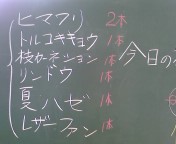 ヒマワリ 2本
トルコキキョウ 1本
枝カーネーション 1本
リンドウ 1本
夏ハゼ 1本
レザーファン 1本
今日の